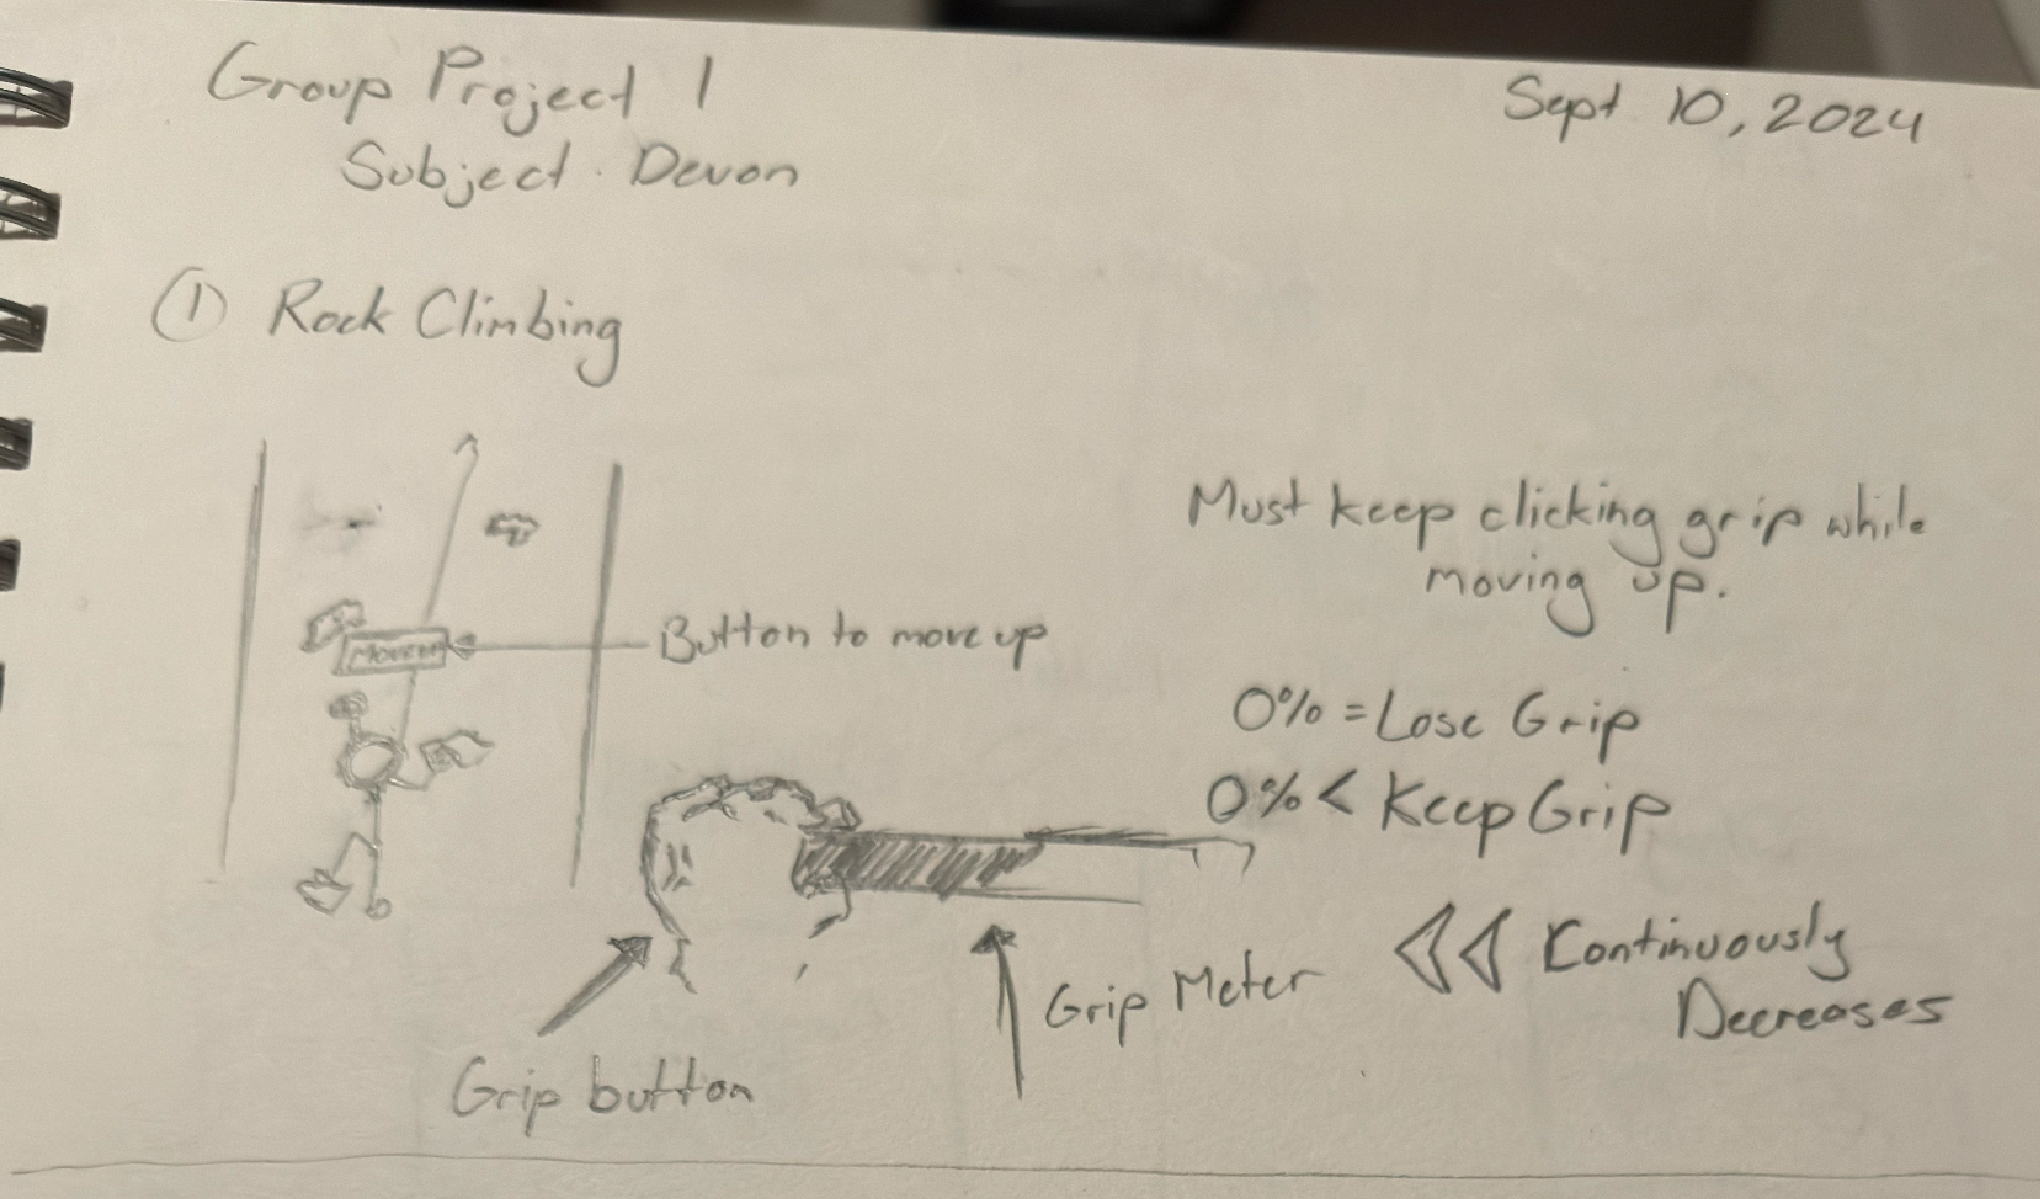 Group Project 1
Sept 10, 2024
Subject: Devon
① Rock Climbing
Must keep clicking grip while
moving up.
Button to move up
0% = Lose Grip
0% < Keep Grip
Continuously
Decreases
Grip Meter
Grip button